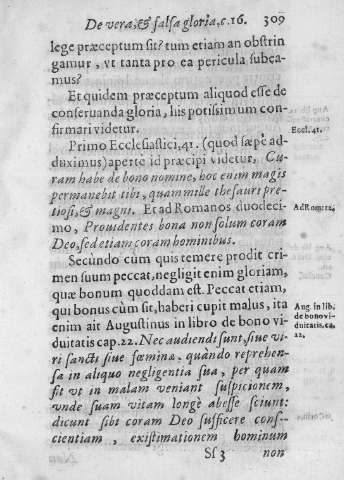 De vera, & falsa gloria, c.16. 309
lege præceptum sit? tum etiam an obstrin
gamur, vt tanta pro ea pericula subea-
mus?
Et quidem præceptum aliquod esse de
conseruanda gloria, his potissimum con-
firmari videtur.
Primo Ecclesiastici, 41. (quod sæpè ad-
duximus) aperte id præcipi videtur, Cu-
ram habe de bono nomine, hoc enim magis
permanebit tibi, quam mille thesauri pre-
tiosi, & magni. Et ad Romanos duodeci-
mo, Prouidentes bona non solum coram
Deo, sed etiam coram hominibus.
Secùndo cùm quis temere prodit cri-
men suum peccat, negligit enim gloriam,
quæ bonum quoddam est. Peccat etiam,
qui bonus cùm sit, haberi cupit malus, ita
enim ait Augustinus in libro de bono vi-
duitatis cap. 22. Nec audiendi sunt, siue vi-
ri sancti siue fœminæ, quàndo reprehen-
sa in aliquo negligentia sua, per quam
fit vt in malam veniant suspicionem,
vnde suam vitam longè abesse sciunt:
dicunt sibi coram Deo sufficere cons-
cientiam, existimationem hominum
Sf 3 non
Eccl. 41.
Ad Rom. 12.
Aug in lib.
de bono vi-
duitatis, ca.
22,